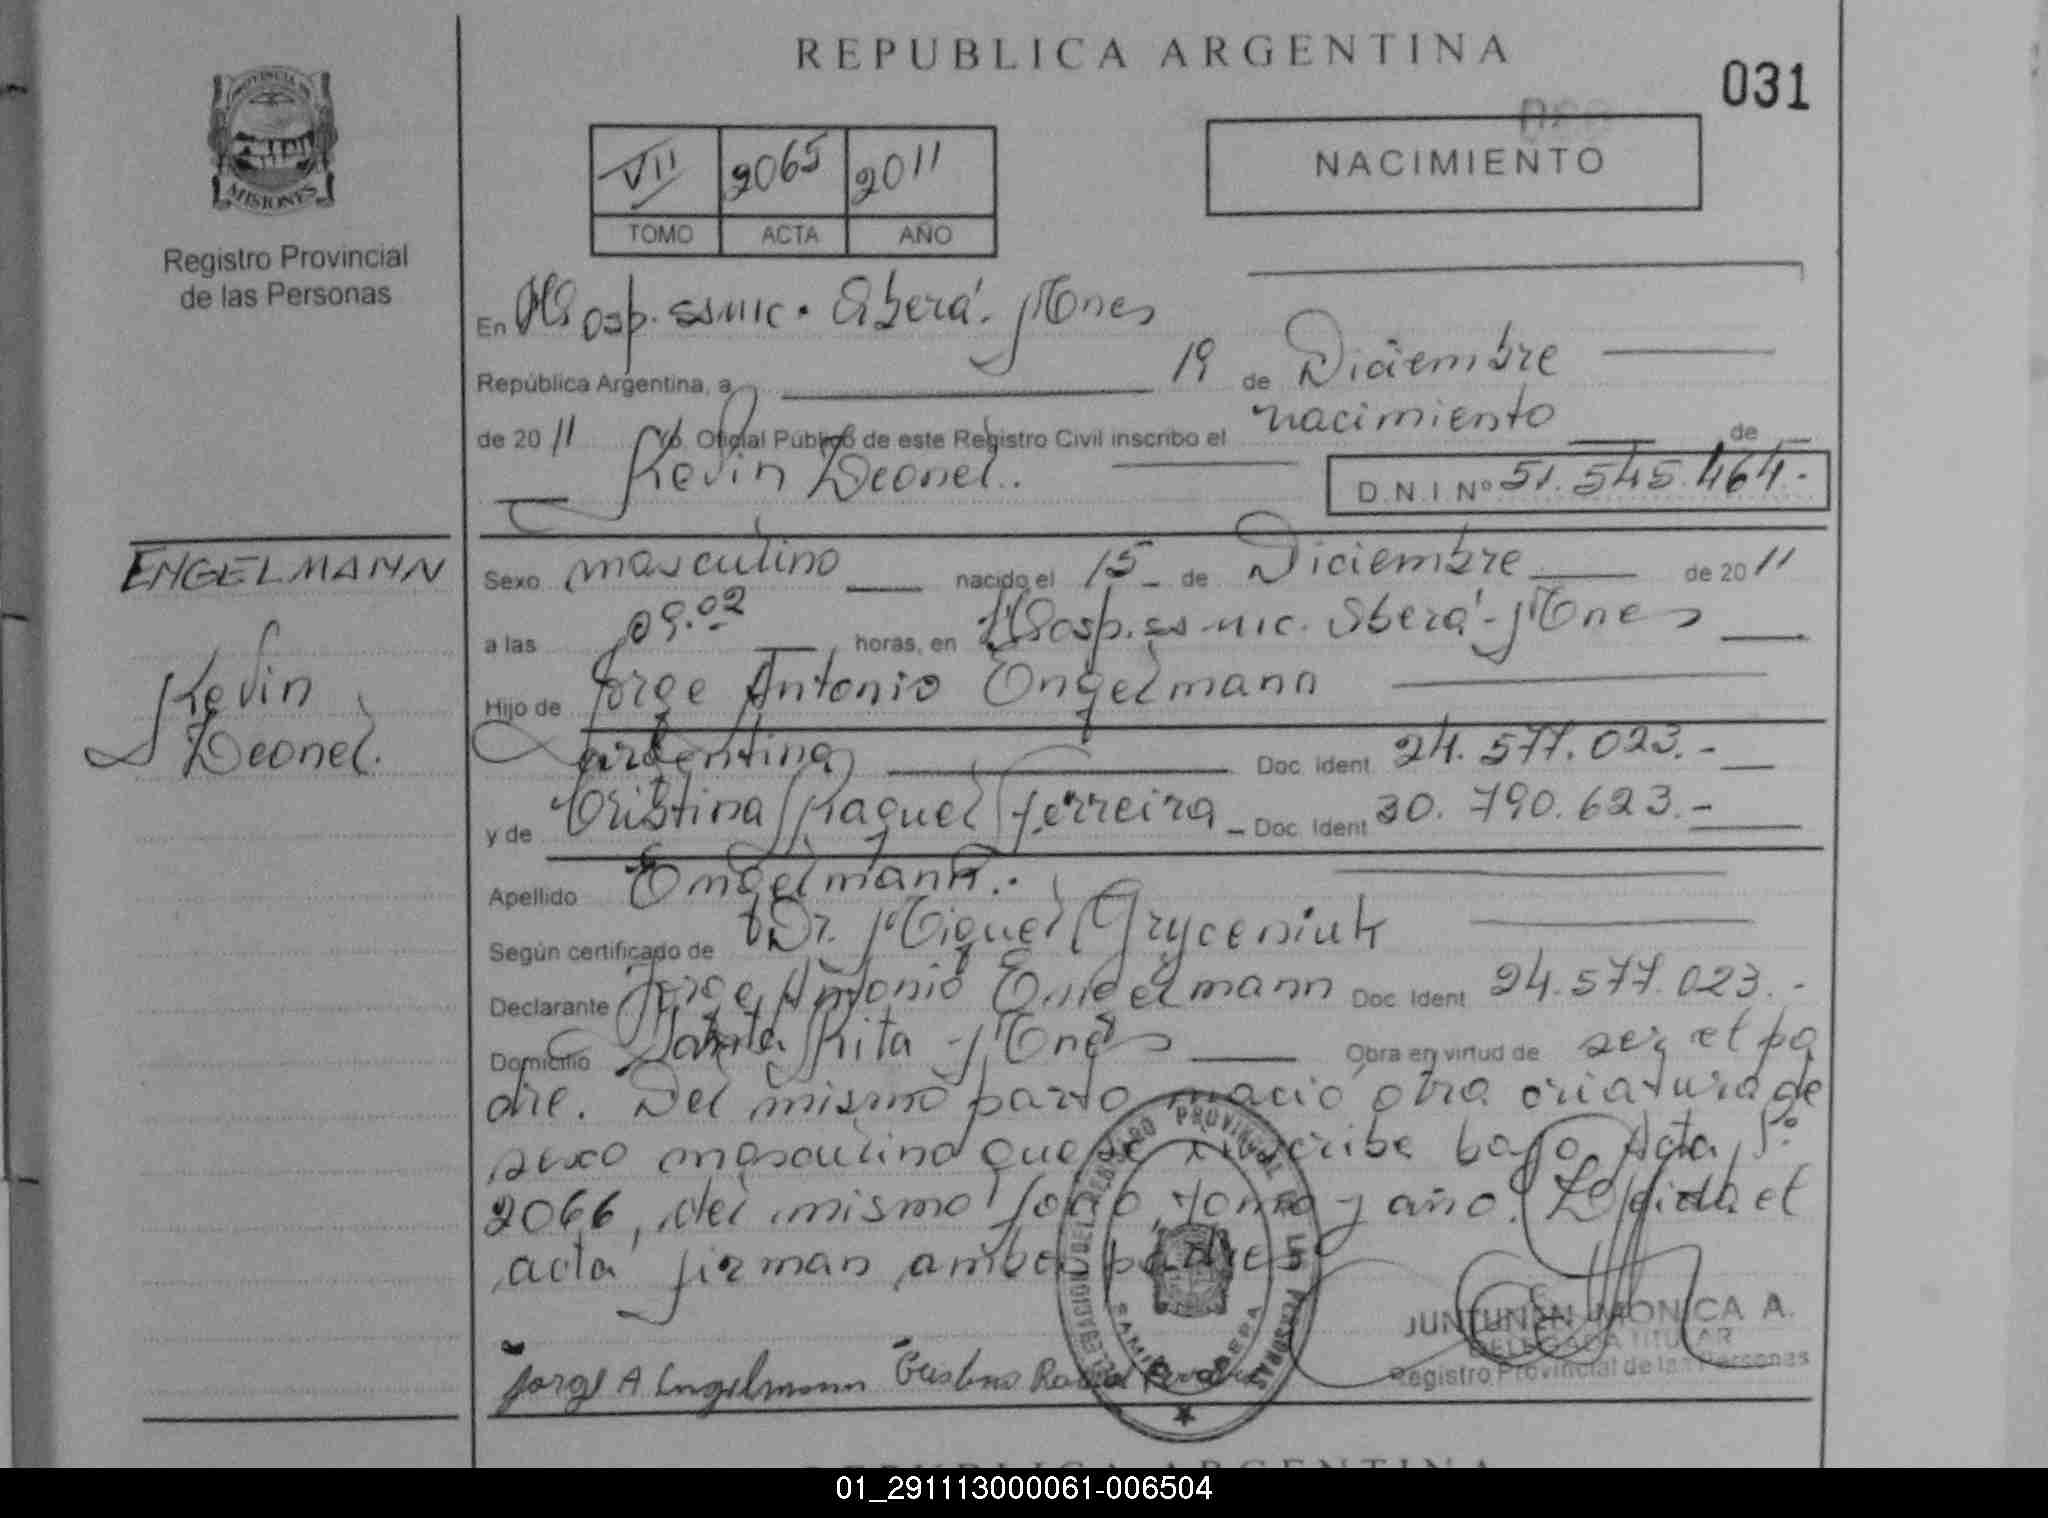 REPUBLICA ARGENTINA
031
PROVINCIA
MISIONES
Registro Provincial
de las Personas
NACIMIENTO
VII 2065 2011
TOMO ACTA AÑO
En Hosp. ssmic. Oberá - Mnes
República Argentina, a 19 de Diciembre
de 2011 Yo, Oficial Público de este Registro Civil inscribo el nacimiento de
Kevin Leonel.
D.N.I Nº 51.545.464.-
ENGELMANN
Kevin
Leonel.
Sexo masculino nacido el 15 de Diciembre de 2011
a las 09.02 horas, en Hosp. ss mic. Oberá - Mnes
Hijo de Jorge Antonio Engelmann
argentina Doc. Ident 24.577.023.-
y de Cristina Raquel Ferreira - Doc. Ident 30.790.623.-
Apellido Engelmann.
Según certificado de Dr. Miguel Gryceniuk
Declarante Jorge Antonio Engelmann Doc. Ident 24.577.023.-
Domicilio Santa Rita - Mnes Obra en virtud de ser el pa
dre. Del mismo parto nació otra criatura de
sexo masculino que se inscribe bajo Acta Nº
2066, del mismo folio, tomo y año. Leída el
acta firman ambos padres
Jorge A Engelmann Cristina Raquel Ferreira
DELEGACION DEL REGISTRO PROVINCIAL DE LAS PERSONAS
JUNTUNEN MONICA A.
DELEGADA TITULAR
Registro Provincial de las Personas
REPUBLICA ARGENTINA
01_291113000061-006504